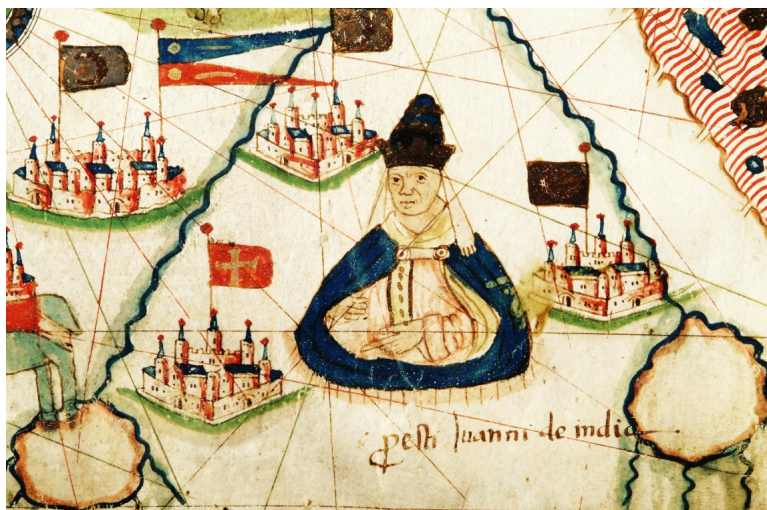 presti Juanni de india